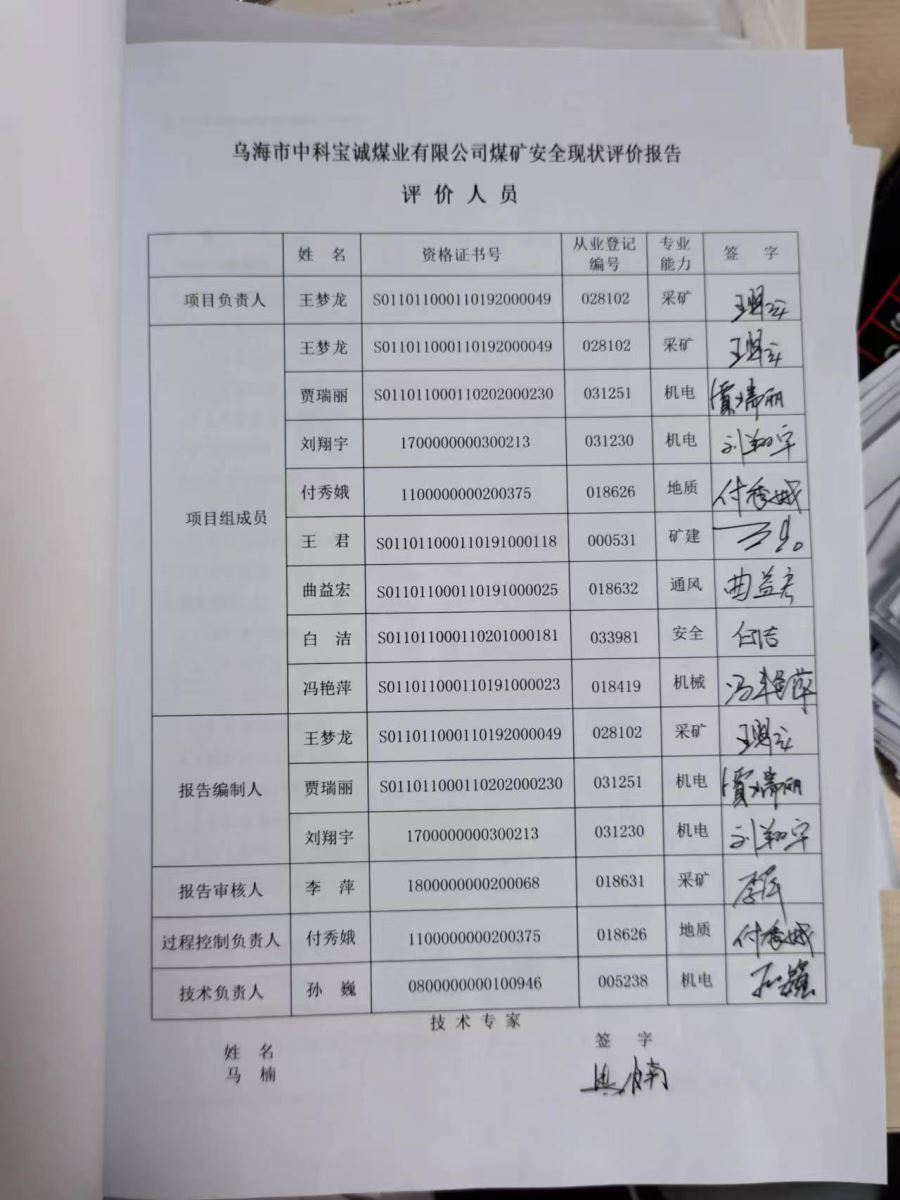 乌海市中科宝诚煤业有限公司煤矿安全现状评价报告
评 价 人 员
姓 名 资格证书号 从业登记编号 专业能力 签 字
项目负责人 王梦龙 S011011000110192000049 028102 采矿
项目组成员 王梦龙 S011011000110192000049 028102 采矿
贾瑞丽 S011011000110202000230 031251 机电 贾瑞丽
刘翔宇 1700000000300213 031230 机电 刘翔宇
付秀娥 1100000000200375 018626 地质 付秀娥
王 君 S011011000110191000118 000531 矿建
曲益宏 S011011000110191000025 018632 通风 曲益宏
白 洁 S011011000110201000181 033981 安全 白洁
冯艳萍 S011011000110191000023 018419 机械 冯艳萍
报告编制人 王梦龙 S011011000110192000049 028102 采矿
贾瑞丽 S011011000110202000230 031251 机电 贾瑞丽
刘翔宇 1700000000300213 031230 机电 刘翔宇
报告审核人 李 萍 1800000000200068 018631 采矿 李萍
过程控制负责人 付秀娥 1100000000200375 018626 地质 付秀娥
技术负责人 孙 巍 0800000000100946 005238 机电 孙巍
技 术 专 家
姓 名 签 字
马 楠 马楠